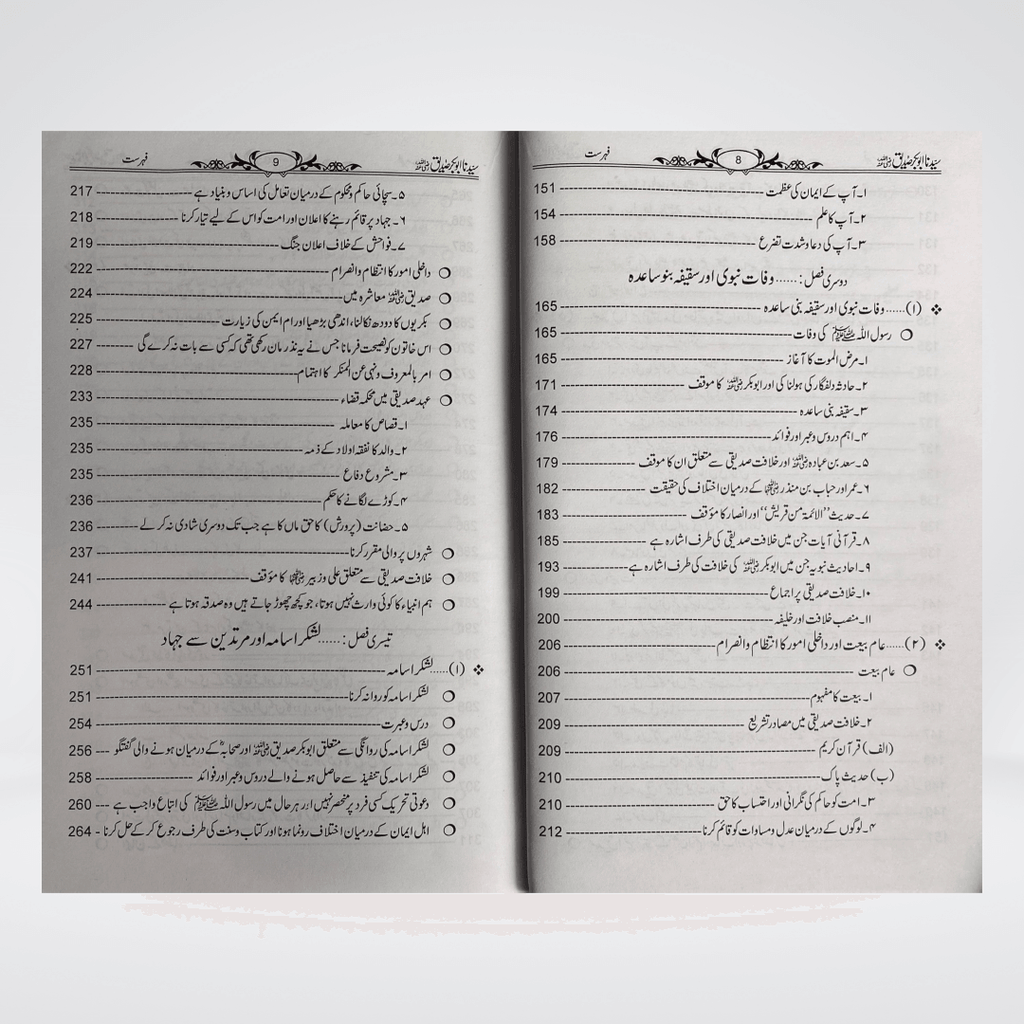 سیدنا ابوبکر صدیق رضی اللہ عنہ 8 فہرست
۱۔ آپ کے ایمان کی عظمت 151
۲۔ آپ کا علم 154
۳۔ آپ کی دعا و شدت تضرع 158
دوسری فصل: ...... وفات نبوی اور سقیفہ بنو ساعدہ
❖ (۱)..... وفات نبوی اور سقیفہ بنی ساعدہ 165
○ رسول اللہ ﷺ کی وفات 165
۱۔ مرض الموت کا آغاز 165
۲۔ حادثہ دلفگار کی ہولناکی اور ابوبکر رضی اللہ عنہ کا موقف 171
۳۔ سقیفہ بنی ساعدہ 174
۴۔ اہم دروس و عبر اور فوائد 176
۵۔ سعد بن عبادہ رضی اللہ عنہ اور خلافت صدیقی سے متعلق ان کا موقف 179
۶۔ عمر اور حباب بن منذر رضی اللہ عنہما کے درمیان اختلاف کی حقیقت 182
۷۔ حدیث ’’الائمۃ من قریش‘‘ اور انصار کا مؤقف 183
۸۔ قرآنی آیات جن میں خلافت صدیقی کی طرف اشارہ ہے 185
۹۔ احادیث نبویہ جن میں ابوبکر رضی اللہ عنہ کی خلافت کی طرف اشارہ ہے 193
۱۰۔ خلافت صدیقی پر اجماع 199
۱۱۔ منصب خلافت اور خلیفہ 200
❖ (۲)..... عام بیعت اور داخلی امور کا انتظام و انصرام 206
○ عام بیعت 206
۱۔ بیعت کا مفہوم 207
۲۔ خلافت صدیقی میں مصادر تشریع 209
(الف) قرآن کریم 209
(ب) حدیث پاک 210
۳۔ امت کو حاکم کی نگرانی اور احتساب کا حق 210
۴۔ لوگوں کے درمیان عدل و مساوات کو قائم کرنا 212
سیدنا ابوبکر صدیق رضی اللہ عنہ 9 فہرست
۵۔ سچائی حاکم و محکوم کے درمیان تعامل کی اساس و بنیاد ہے 217
۶۔ جہاد پر قائم رہنے کا اعلان اور امت کو اس کے لیے تیار کرنا 218
۷۔ فواحش کے خلاف اعلان جنگ 219
○ داخلی امور کا انتظام و انصرام 222
○ صدیق رضی اللہ عنہ معاشرہ میں 224
○ بکریوں کا دودھ نکالنا، اندھی بڑھیا اور ام ایمن کی زیارت 225
○ اس خاتون کو نصیحت فرمانا جس نے یہ نذر مان رکھی تھی کہ کسی سے بات نہ کرے گی 227
○ امر بالمعروف و نہی عن المنکر کا اہتمام 228
○ عہد صدیقی میں محکمہ قضاء 233
۱۔ قصاص کا معاملہ 235
۲۔ والد کا نفقہ اولاد کے ذمہ 235
۳۔ مشروع دفاع 235
۴۔ کوڑے لگانے کا حکم 236
۵۔ حضانت (پرورش) کا حق ماں کا ہے جب تک دوسری شادی نہ کر لے 236
○ شہروں پر والی مقرر کرنا 237
○ خلافت صدیقی سے متعلق علی و زبیر رضی اللہ عنہما کا مؤقف 241
○ ہم انبیاء کا کوئی وارث نہیں ہوتا، جو کچھ چھوڑ جاتے ہیں وہ صدقہ ہوتا ہے 244
تیسری فصل: ...... لشکر اسامہ اور مرتدین سے جہاد
❖ (۱)..... لشکر اسامہ 251
○ لشکر اسامہ کو روانہ کرنا 251
○ درس و عبرت 254
○ لشکر اسامہ کی روانگی سے متعلق ابوبکر صدیق رضی اللہ عنہ اور صحابہؓ کے درمیان ہونے والی گفتگو 256
○ لشکر اسامہ کی تنفیذ سے حاصل ہونے والے دروس و عبر اور فوائد 258
○ دعوتی تحریک کسی فرد پر منحصر نہیں اور ہر حال میں رسول اللہ ﷺ کی اتباع واجب ہے 260
○ اہل ایمان کے درمیان اختلاف رونما ہونا اور کتاب و سنت کی طرف رجوع کر کے حل کرنا 264